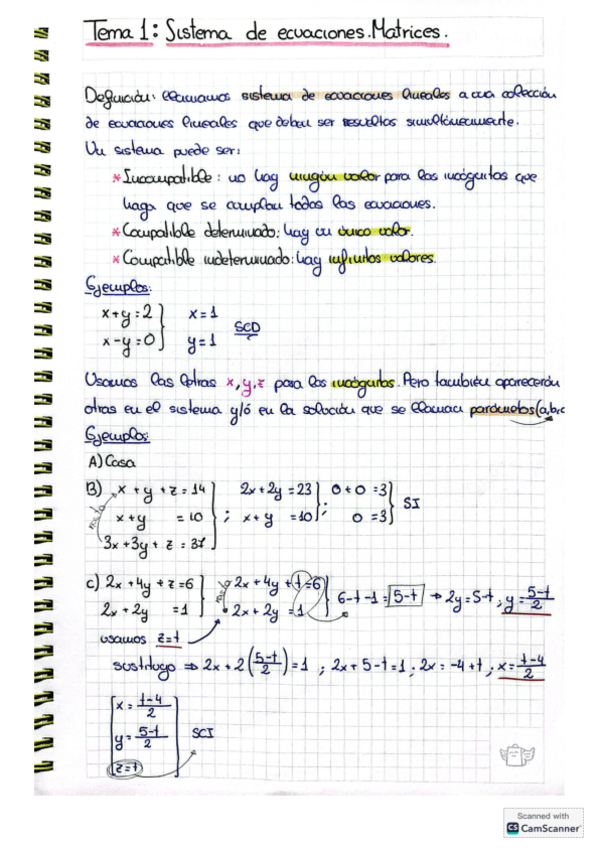 Tema 1: Sistema de ecuaciones. Matrices.
Definición: llamamos sistema de ecuaciones lineales a una colección
de ecuaciones lineales que deben ser resueltos simultáneamente.
Un sistema puede ser:
* Incompatible: no hay ningún valor para las incógnitas que
haga que se cumplan todas las ecuaciones.
* Compatible determinado: hay un único valor.
* Compatible indeterminado: hay infinitos valores.
Ejemplos:
x+y=2 } x=1
x-y=0 } y=1 SCD
Usamos las letras x, y, z para las incógnitas. Pero también aparecerán
otras en el sistema y/ó en la solución que se llaman parámetros (a,b,c
Ejemplos:
A) Casa
B) x + y + z = 14 } 2x + 2y = 23 } 0 + 0 = 3 } SI
x+y = 10 } ; x + y = 10 } ; 0 = 3 }
3x + 3y + z = 37 }
resto
C) 2x + 4y + z = 6 } 2x + 4y + t = 6 } 6-t-1 = 5-t → 2y = 5-t, y = 5-t/2
2x + 2y = 1 } 2x + 2y = 1 }
resto
usamos z=t
sustituyo ⇒ 2x + 2(5-t/2) = 1 ; 2x + 5-t = 1 ; 2x = -4 + t ; x = t-4/2
x = t-4/2
y = 5-t/2 SCI
z=t
Scanned with
CS CamScanner